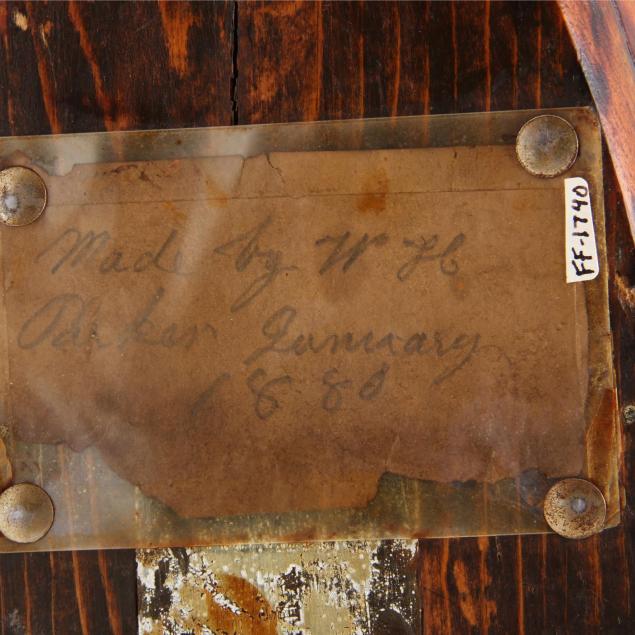 Made by W H
Parker January
1880
FF-1740